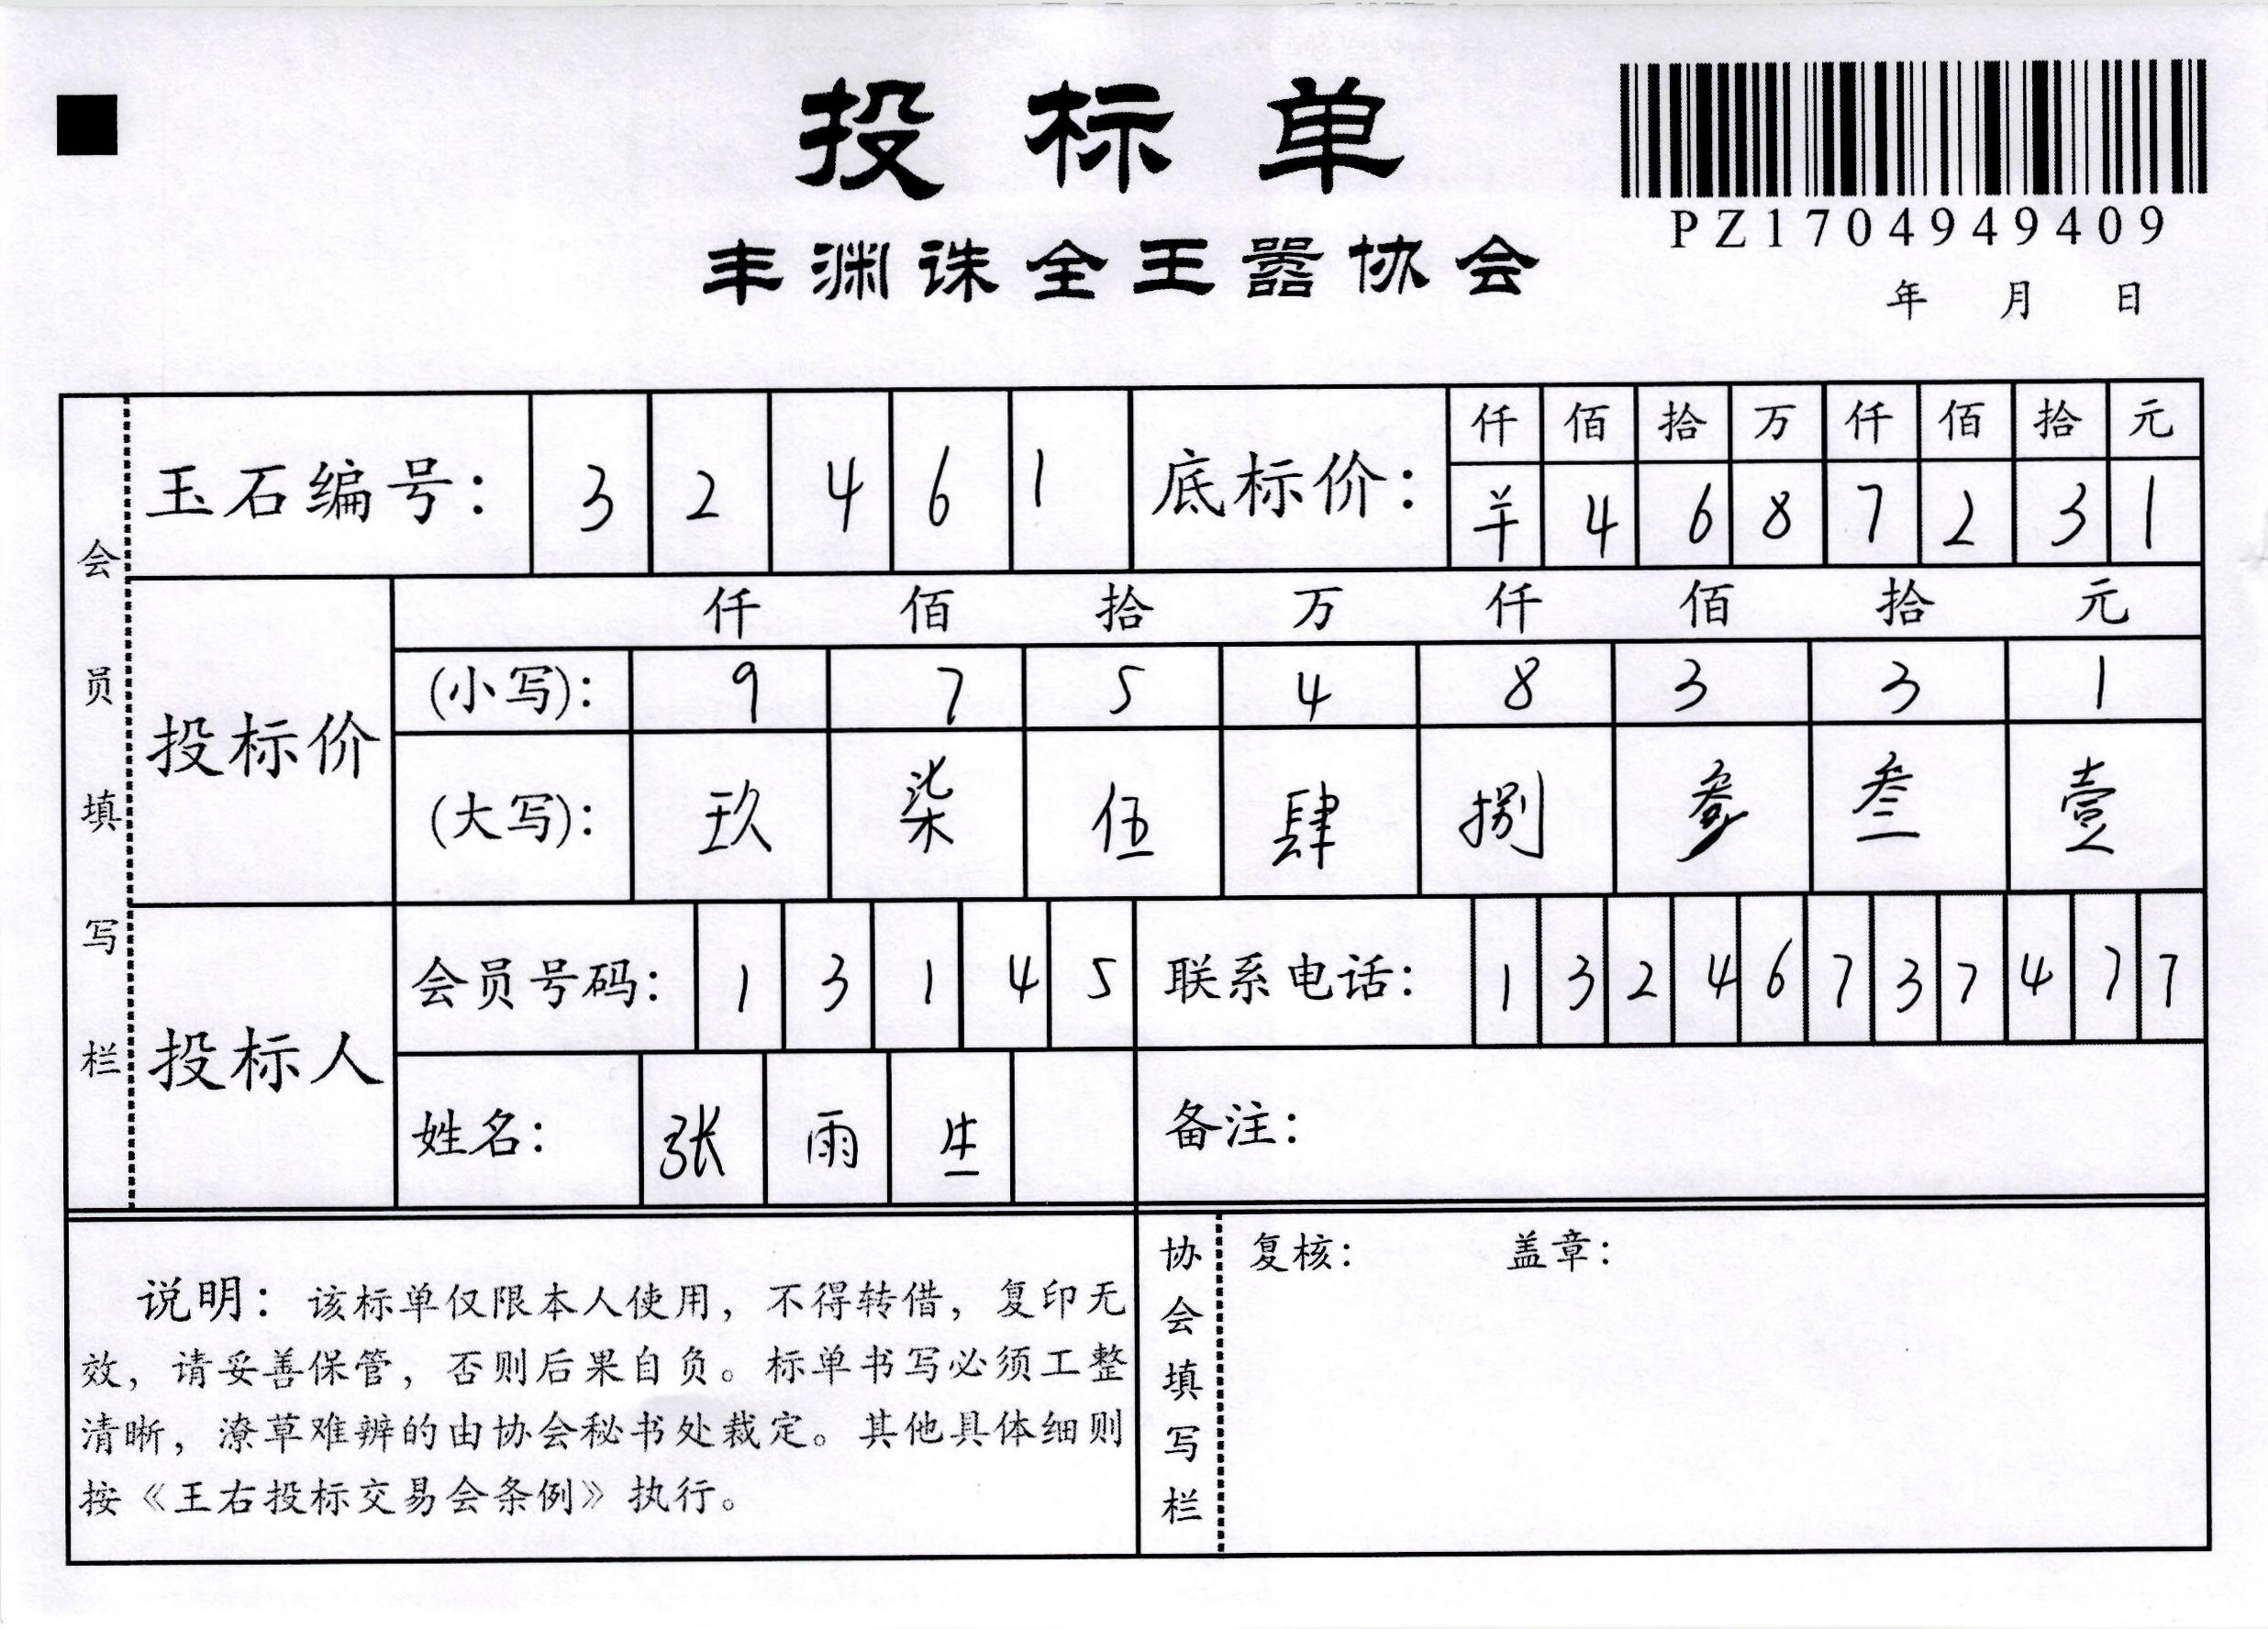 投标单
PZ1704949409
丰渊诛全王嚣协会
年 月 日
会员填写栏
玉石编号: 3 2 4 6 1
底标价:
仟 佰 拾 万 仟 佰 拾 元
4 6 8 7 2 3 1
投标价
仟 佰 拾 万 仟 佰 拾 元
(小写): 9 7 5 4 8 3 3 1
(大写): 玖 柒 伍 肆 捌 叁 叁 壹
投标人
会员号码: 1 3 1 4 5
联系电话: 1 3 2 4 6 7 3 7 4 7 7
姓名: 张 雨 生
备注:
说明: 该标单仅限本人使用, 不得转借, 复印无
效, 请妥善保管, 否则后果自负。标单书写必须工整
清晰, 潦草难辨的由协会秘书处裁定。其他具体细则
按《王右投标交易会条例》执行。
协会填写栏
复核: 盖章: